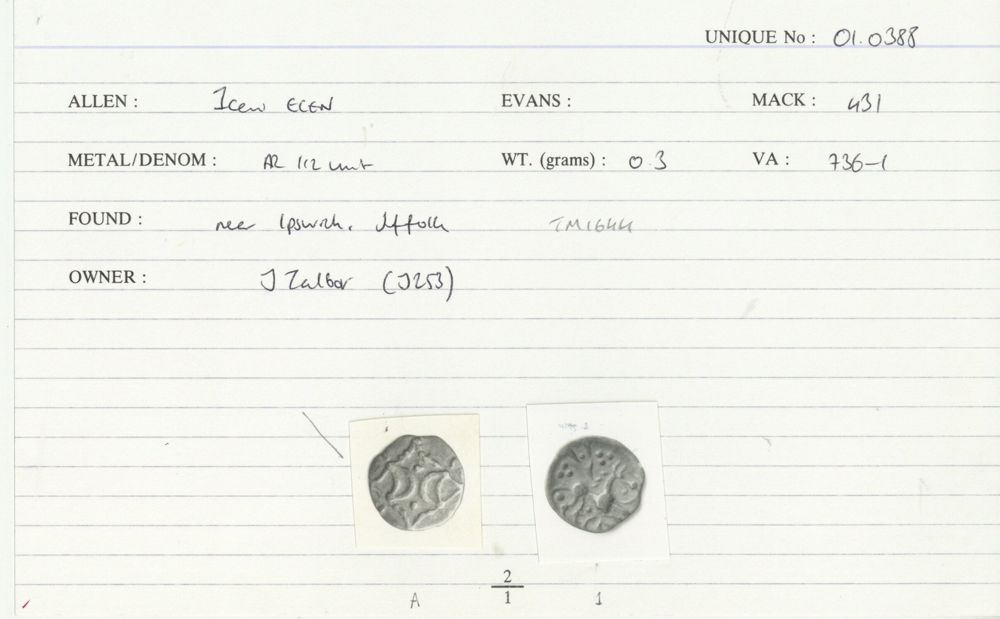 UNIQUE No : 01.0388
ALLEN : Iceni ECEN EVANS : MACK : 431
METAL/DENOM : AR 1/2 unit WT. (grams) : 0.3 VA : 736-1
FOUND : near Ipswich, Suffolk TM1644
OWNER : J Talbot (J253)
2
A 1 1